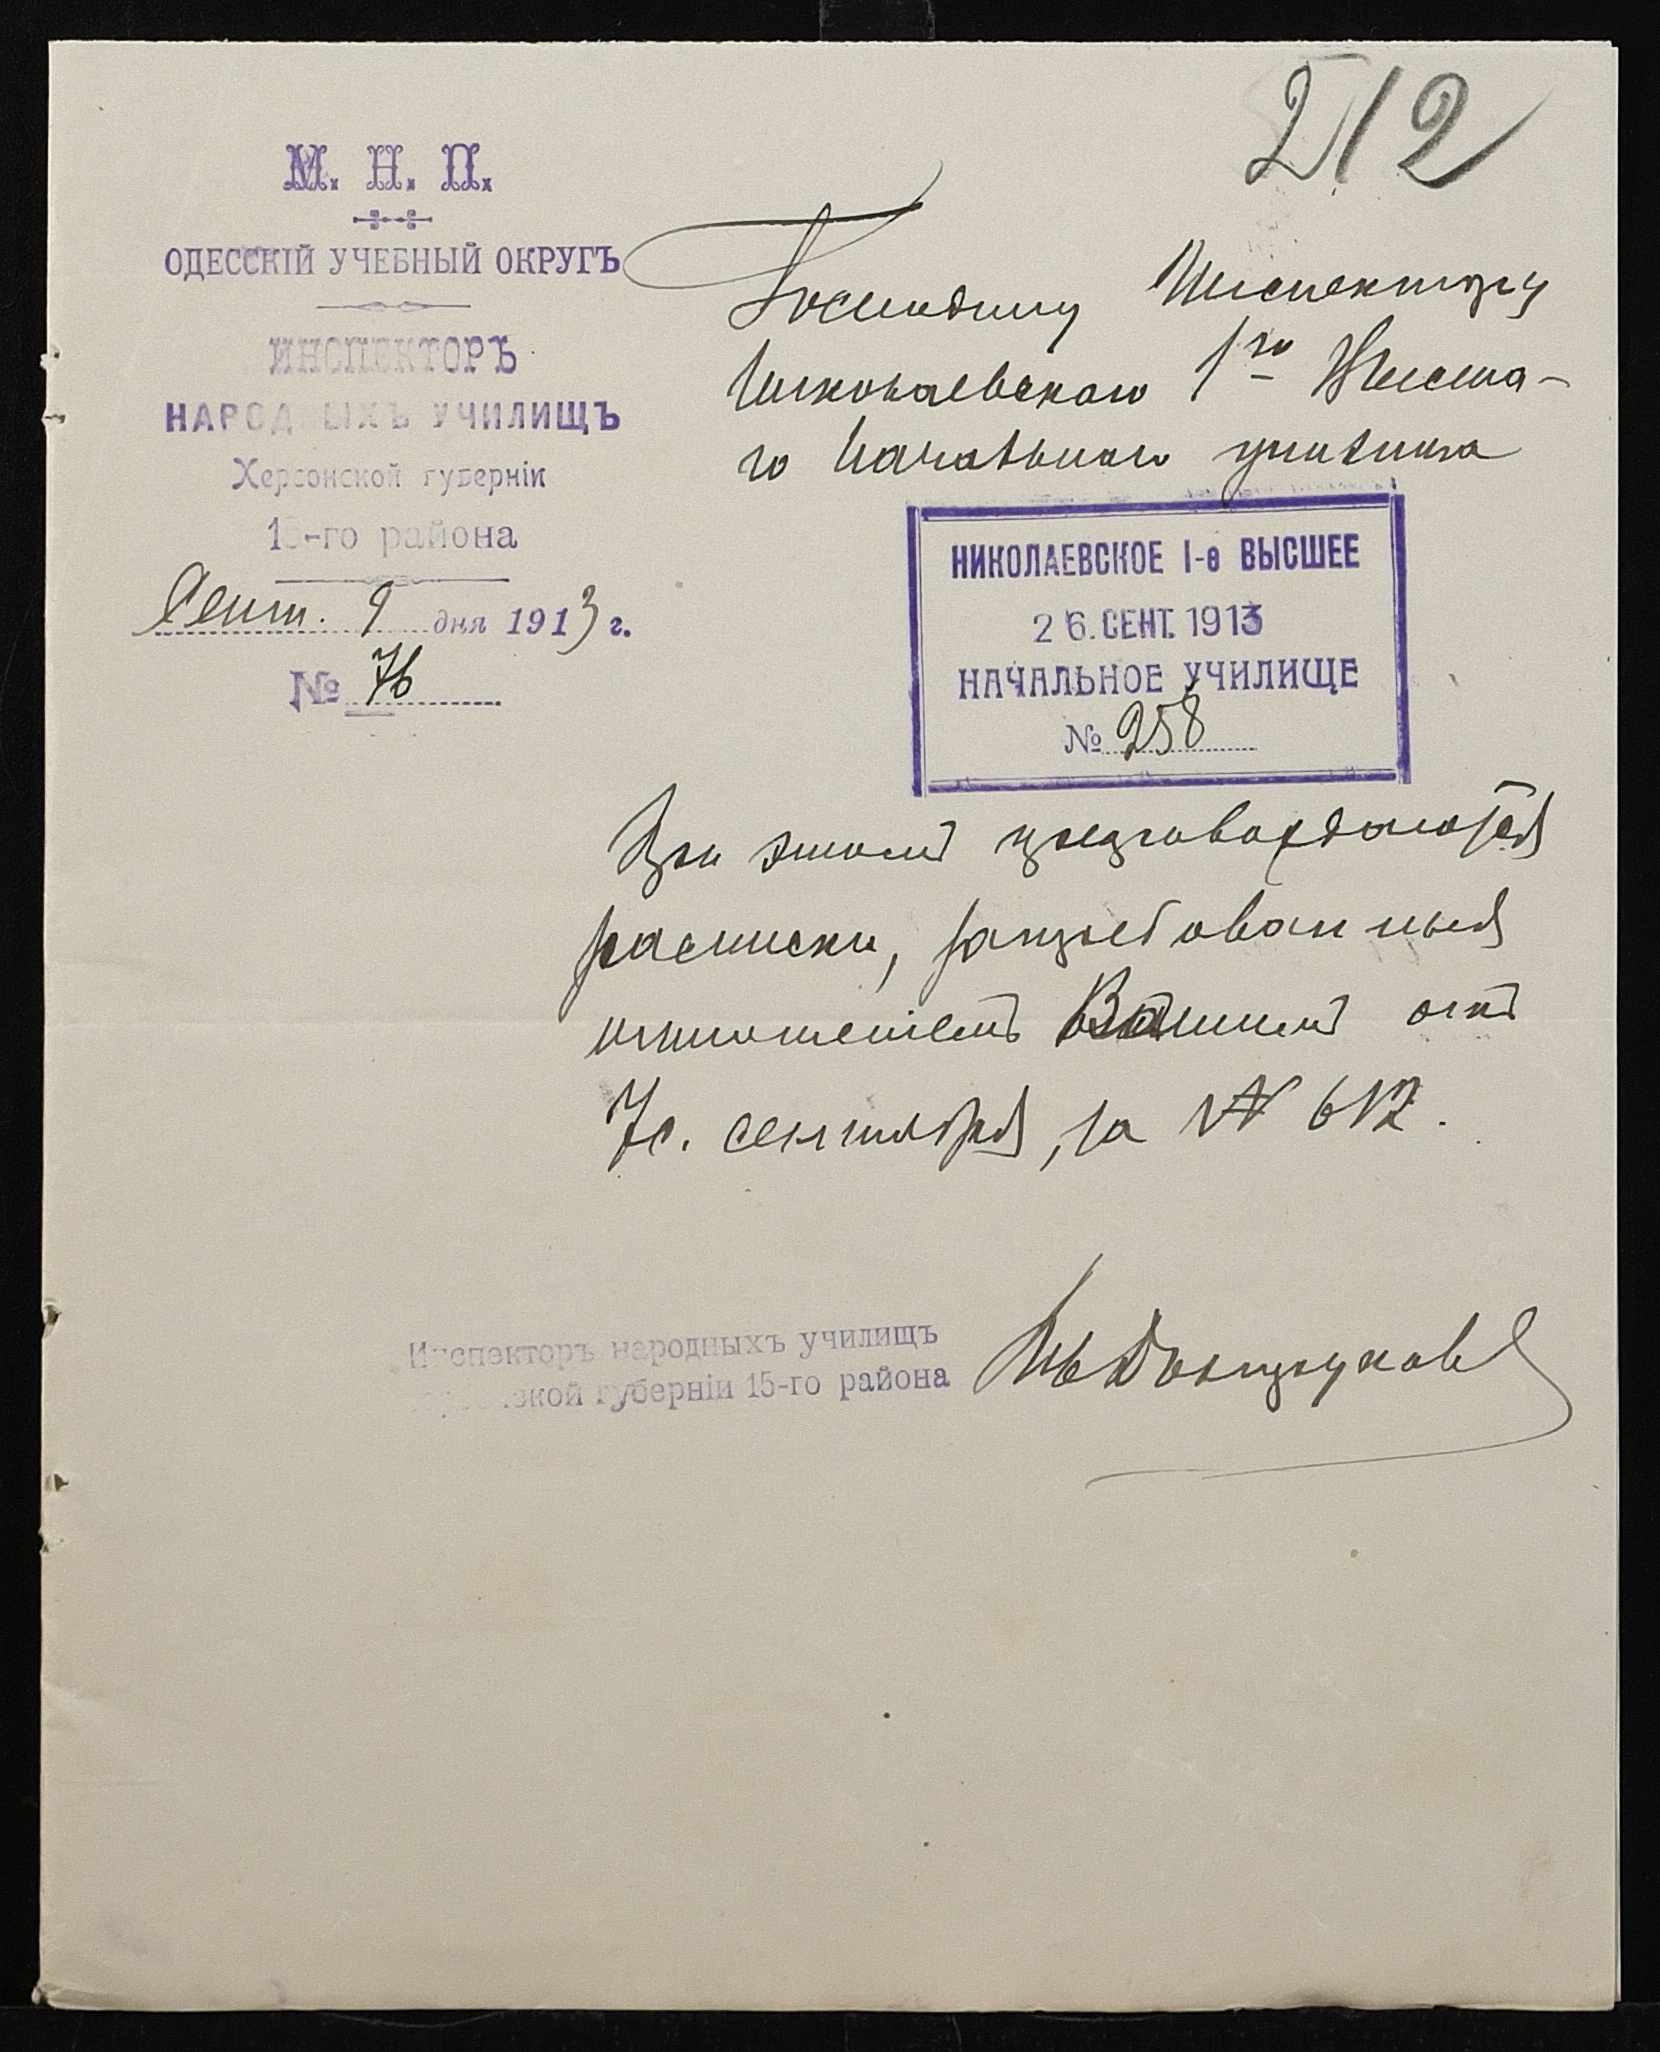 212
М. Н. П.
ОДЕССКІЙ УЧЕБНЫЙ ОКРУГЪ
ИНСПЕКТОРЪ
НАРОДНЫХЪ УЧИЛИЩЪ
Херсонской губерніи
15-го района
Сент. 9 дня 1913 г.
№ 76
Господину Инспектору
Николаевскаго 1го Высша-
го Начальнаго училища
НИКОЛАЕВСКОЕ I-е ВЫСШЕЕ
26. СЕНТ. 1913
НАЧАЛЬНОЕ УЧИЛИЩЕ
№ 258
При этомъ препровождаются
расписки, затребованныя
отношеніемъ Вашимъ отъ
7 с. сентября, за № 612.
Инспекторъ народныхъ училищъ
Херсонской губерніи 15-го района